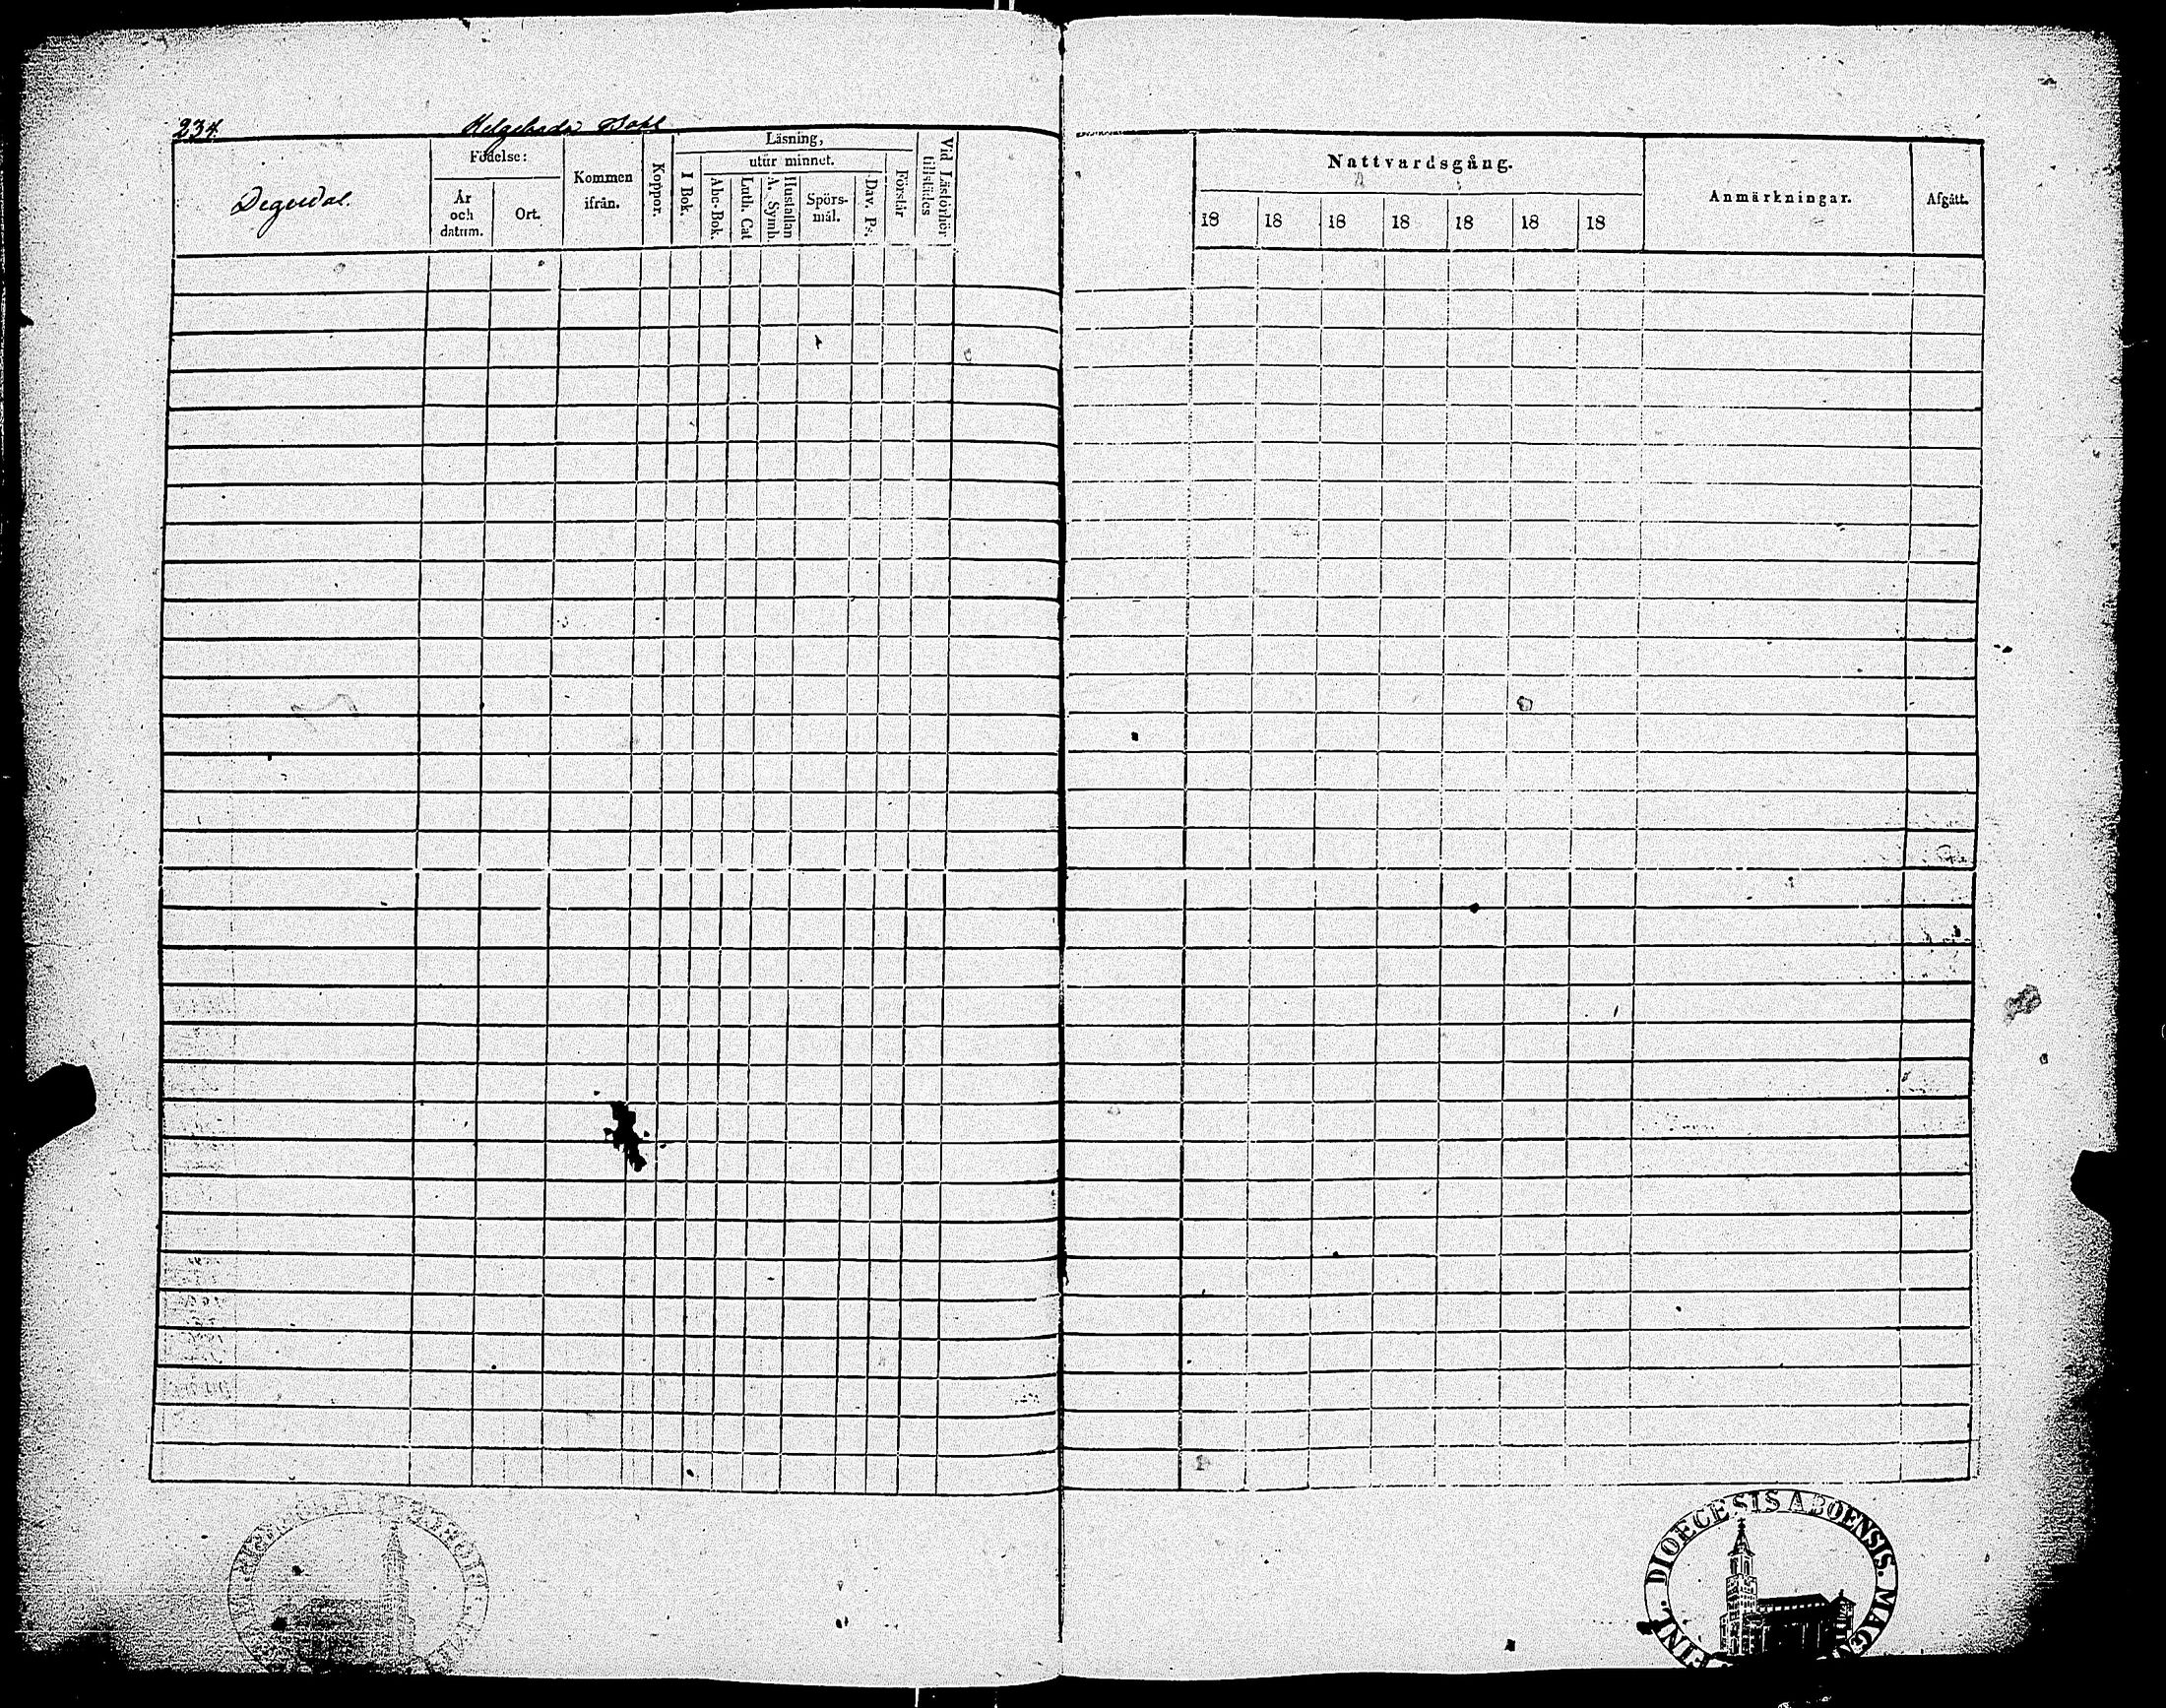 234.
Degerdal.
Födelse:
År
och
datum.
Ort.
Kommen
ifrån.
Koppor.
Läsning,
I Bok.
utur minnet.
Abc-Bok.
Luth. Cat
A. Symb.
Hustaflan
Spörs-
mål.
Dav. Ps.
Förstår
Vid Läsförhör
tillstädes
Nattvardsgång.
18 18 18 18 18 18 18
Anmärkningar.
Afgått.
DIOECESIS ABOENSIS. MAG